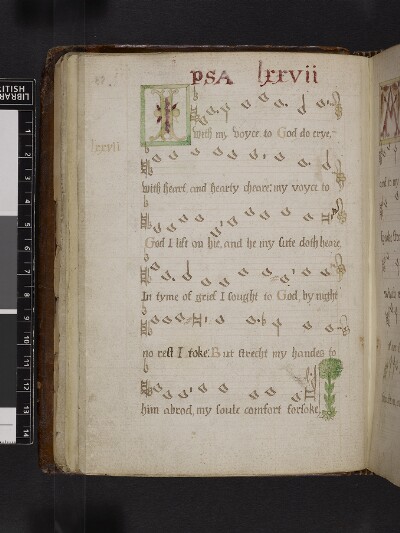 PSA lxxvii
I with my voyce to God do crye,
lxxvii
with heart, and hearty cheare: my voyce to
God I lift on hie, and he my sute doth heare,
In tyme of grief I sought to God, by night
no rest I toke: But strecht my handes to
him abrod, my soule comfort forsoke.
BRITISH LIBRARY
1
2
3
4
5
6
7
8
9
10
11
12
13
14